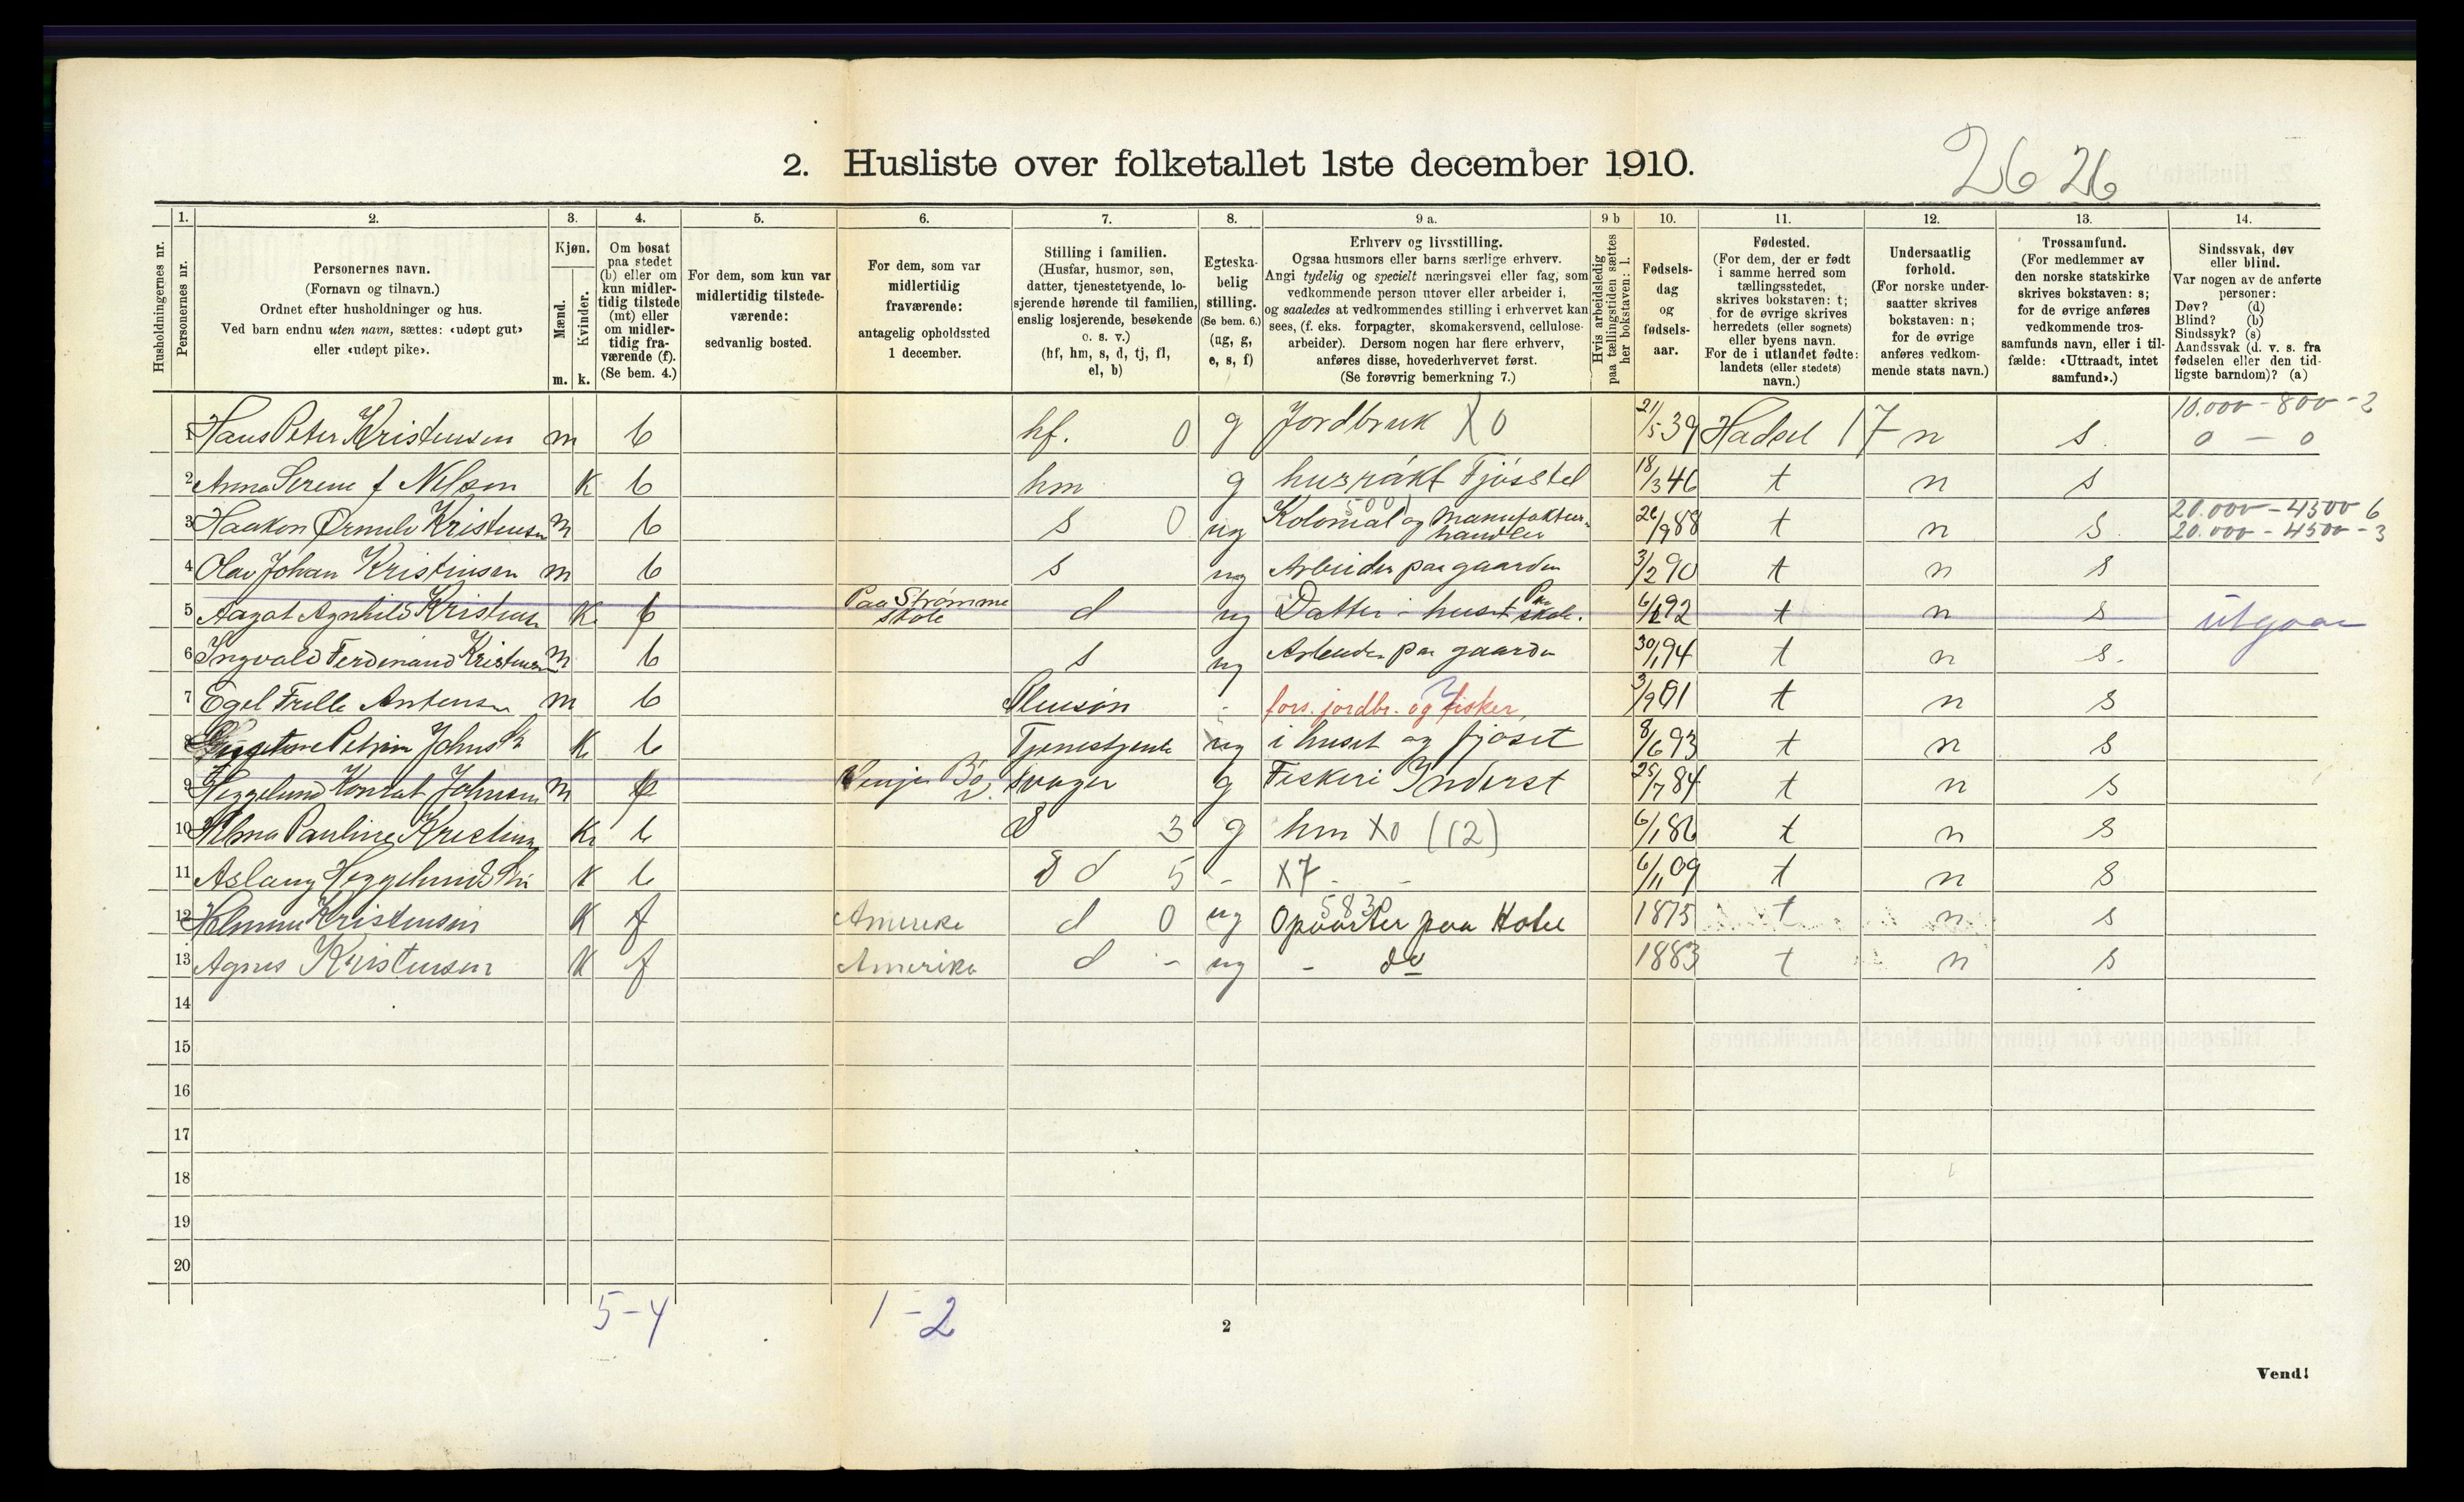 2. Husliste over folketallet 1ste december 1910.
26 26
1. 2. 3. 4. 5. 6. 7. 8. 9 a. 9 b 10. 11. 12. 13. 14.
Husholdningernes nr.
Personernes nr.
Personernes navn.
(Fornavn og tilnavn.)
Ordnet efter husholdninger og hus.
Ved barn endnu uten navn, sættes: «udøpt gut»
eller «udøpt pike».
Kjøn.
Mænd.
Kvinder.
m. k.
Om bosat
paa stedet
(b) eller om
kun midler-
tidig tilstede
(mt) eller
om midler-
tidig fra-
værende (f).
(Se bem. 4.)
For dem, som kun var
midlertidig tilstede-
værende:
sedvanlig bosted.
For dem, som var
midlertidig
fraværende:
antagelig opholdssted
1 december.
Stilling i familien.
(Husfar, husmor, søn,
datter, tjenestetyende, lo-
sjerende hørende til familien,
enslig losjerende, besøkende
o. s. v.)
(hf, hm, s, d, tj, fl,
el, b)
Egteska-
belig
stilling.
(Se bem. 6.)
(ug, g,
e, s, f)
Erhverv og livsstilling.
Ogsaa husmors eller barns særlige erhverv.
Angi tydelig og specielt næringsvei eller fag, som
vedkommende person utøver eller arbeider i,
og saaledes at vedkommendes stilling i erhvervet kan
sees, (f. eks. forpagter, skomakersvend, cellulose-
arbeider). Dersom nogen har flere erhverv,
anføres disse, hovederhvervet først.
(Se forøvrig bemerkning 7.)
Hvis arbeidsledig
paa tællingstiden sættes
her bokstaven: l.
Fødsels-
dag
og
fødsels-
aar.
Fødested.
(For dem, der er født
i samme herred som
tællingsstedet,
skrives bokstaven: t;
for de øvrige skrives
herredets (eller sognets)
eller byens navn.
For de i utlandet fødte:
landets (eller stedets)
navn.)
Undersaatlig
forhold.
(For norske under-
saatter skrives
bokstaven: n;
for de øvrige
anføres vedkom-
mende stats navn.)
Trossamfund.
(For medlemmer av
den norske statskirke
skrives bokstaven: s;
for de øvrige anføres
vedkommende tros-
samfunds navn, eller i til-
fælde: «Uttraadt, intet
samfund».)
Sindssvak, døv
eller blind.
Var nogen av de anførte
personer:
Døv? (d)
Blind? (b)
Sindssyk? (s)
Aandssvak (d. v. s. fra
fødselen eller den tid-
ligste barndom)? (a)
10.000 - 800 - 2
1 Hans Peter Kristensen m b hf. 0 g Jordbruk X0 21/5 39 Hadsel 17 n s. 0 - 0
2 Anna Serene f Nilsen K b hm g husrøkt Fjösstel 18/3 46 t n s
500 20.000 - 4500 6
3 Haakon Ørnulv Kristensen m b s 0 ug Kolonial og Manufaktur- handler 26/9 88 t n s. 20.000 - 4500 - 3
4 Olav Johan Kristensen m b s ug Arbeider paa gaarden 3/2 90 t n s
5 Aagot Agnhild Kristens K Paa Strømme skole d ug Datter i huset skole. 92 t n s utgaar
6 Ingvald Ferdinand Kristensen m b s ug Arbeider paa gaarden 30/1 94 t n s.
7 Egel Frelle Antonsen m b - fors. jordbr. og fisker 3/9 01 t n s
8 Petrine Johns K b Tjenestjente ug i huset og fjöset 8/6 93 t n s
9 Heggelund Konrat Johnsen m Bö Svoger g Fiskeri Inderst 25/7 84 t n s
10 Alma Pauline K b 3 g hm X0 (12) 6/1 86 t n s
11 Aslaug Heggelund K b d 5 - X7 - - 6/11 09 t n s
5830
12 Kristensen K f Amerika d 0 ug Opvarter paa Hotel 1875 t n s
13 Agnes Kristensen K f Amerika d - ug - do 1883 t n s
14
15
16
17
18
19
20
5-4 1-2
2
Vend!